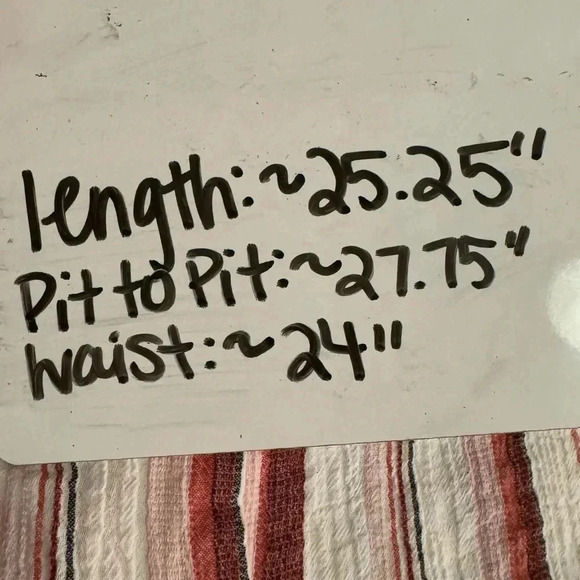 length: ~25.25"
Pit to Pit: ~27.75"
waist: ~24"